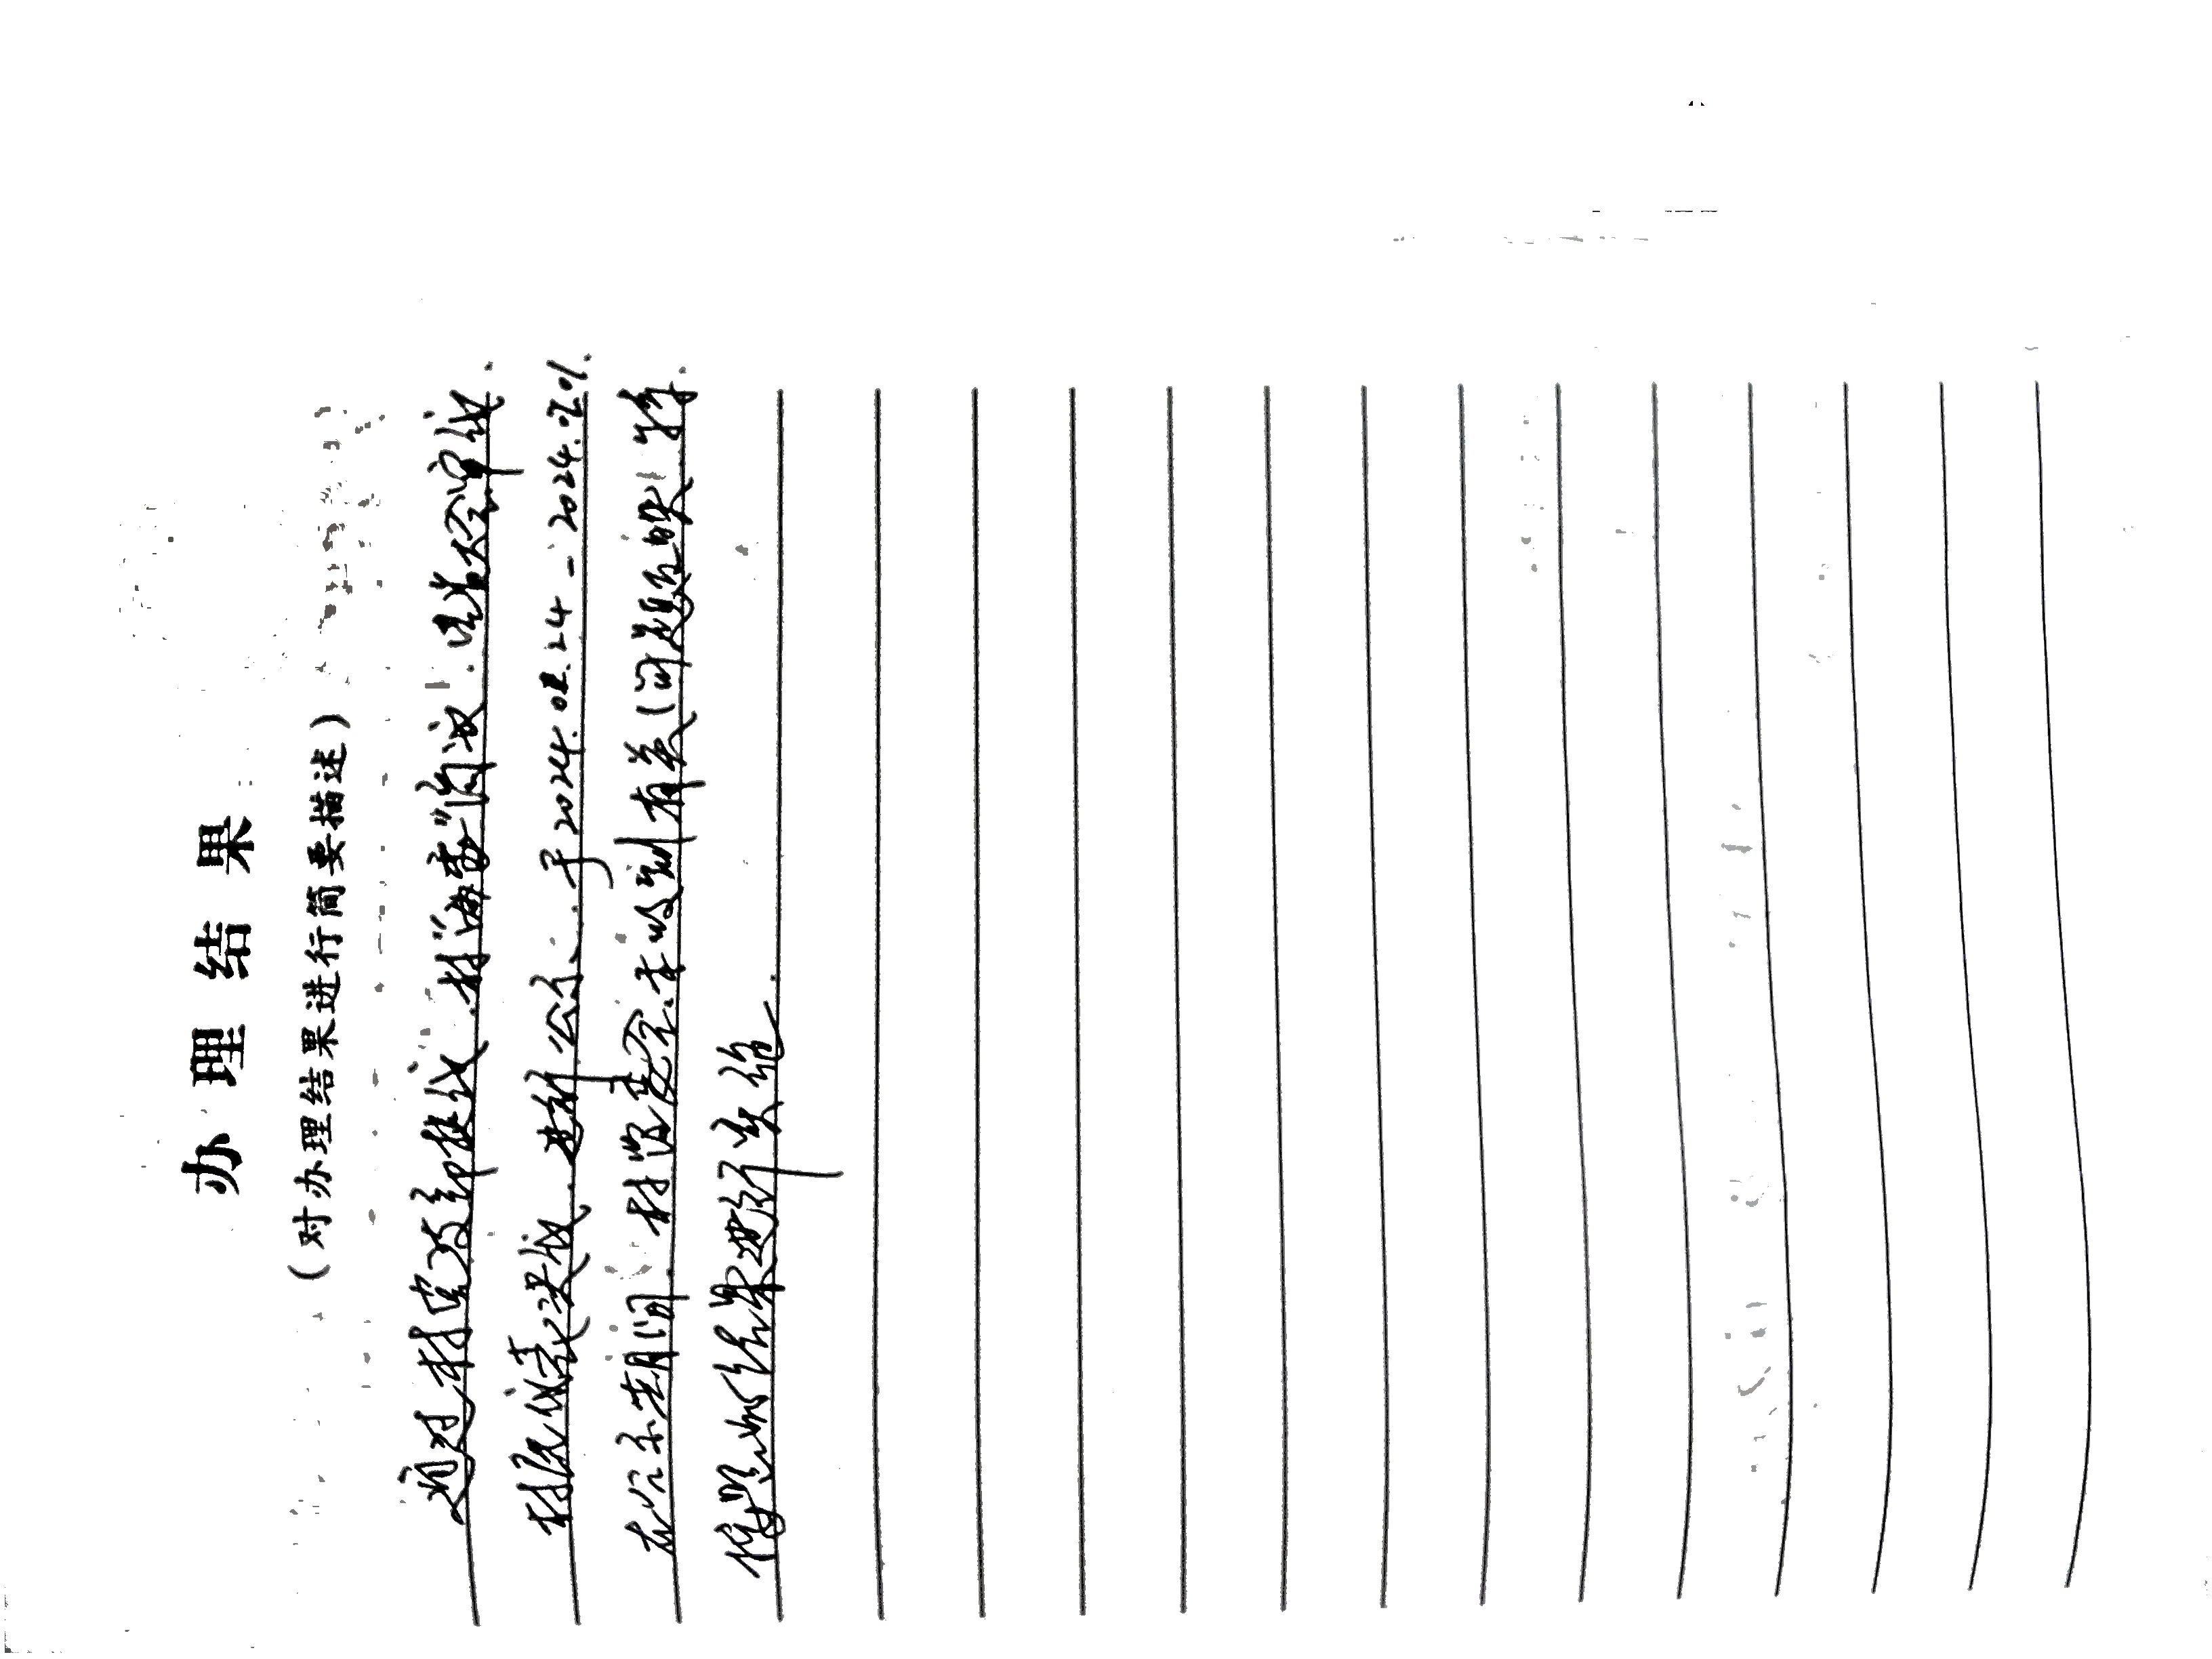 办理结果
（对办理结果进行简要描述）
通过村党支部提议.村"两委"商议.党员大会审议.
村民代表决议.进行公示.于2024.02.24-2024.
在公示期间.村监委会未收到有关问题反映.
按照 结果进行实施.